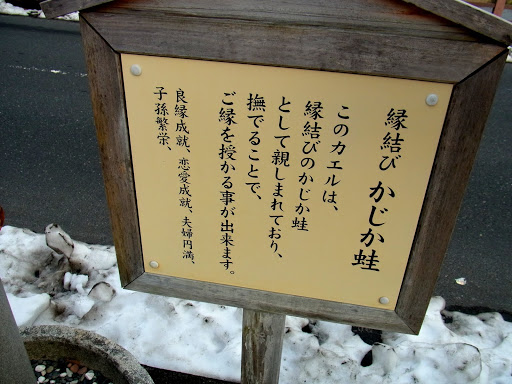 縁結び かじか蛙
このカエルは、
縁結びのかじか蛙
として親しまれており、
撫でることで、
ご縁を授かる事が出来ます。
良縁成就、恋愛成就、夫婦円満、
子孫繁栄、